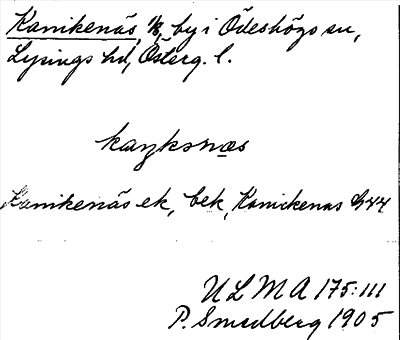 Kanikenäs, by i Ödeshögs sn,
Lysings hd, Österg. l.
kaŋksnæs
Kanikenäs ek, bek, Kanickenas
U L M A 175:111
P. Smedberg 1905